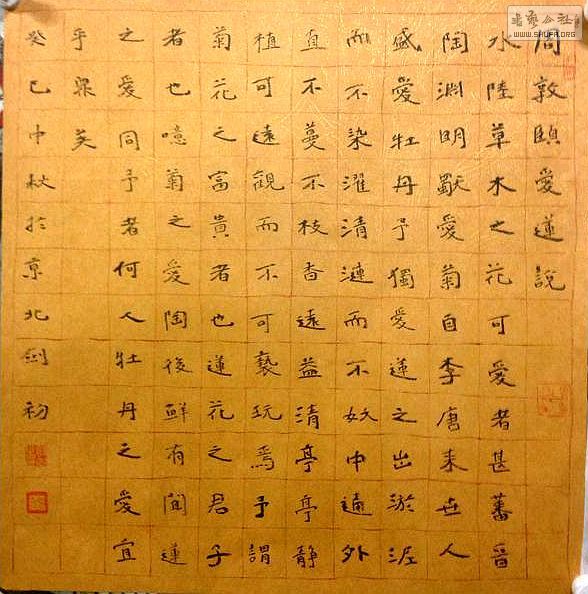 周敦頤愛蓮說
水陸草木之花可愛者甚蕃晉
陶淵明獨愛菊自李唐来世人
盛愛牡丹予獨愛蓮之出淤泥
而不染濯清漣而不妖中通外
直不蔓不枝香遠益清亭亭静
植可遠觀而不可褻玩焉予謂
菊花之富貴者也蓮花之君子
者也噫菊之愛陶後鮮有聞蓮
之愛同予者何人牡丹之愛宜
乎眾矣
癸巳中秋於京北劍初
书艺公社
WWW.SHUFA.ORG